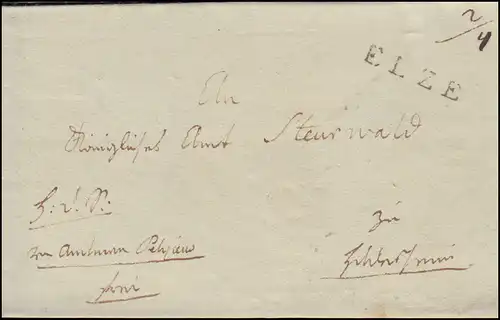 2/4
ELZE
An
Königliches Amt Steurwald
H. d. S.
von Amtmann
frei
zu
Hildesheim